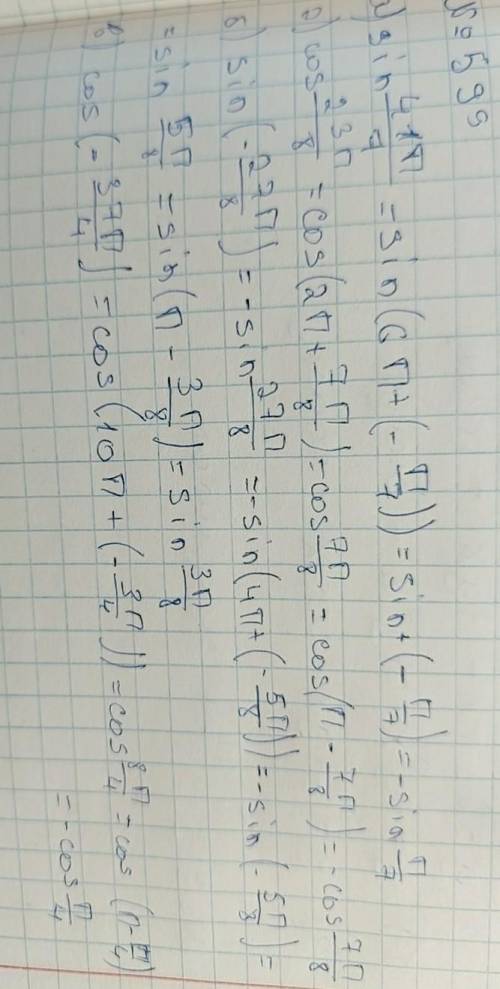 № 599
а) sin 41π/7 = sin (6π + (- π/7)) = sin + (- π/7) = - sin π/7
а) cos 23π/8 = cos (2π + 7π/8) = cos 7π/8 = cos (π - 7π/8) = - cos 7π/8
б) sin (- 27π/8) = - sin 27π/8 = - sin (4π + (- 5π/8)) = - sin (- 5π/8) =
= sin 5π/8 = sin (π - 3π/8) = sin 3π/8
в) cos (- 37π/4) = cos (10π + (- 3π/4)) = cos 8π/4 = cos (π - π/4)
= - cos π/4